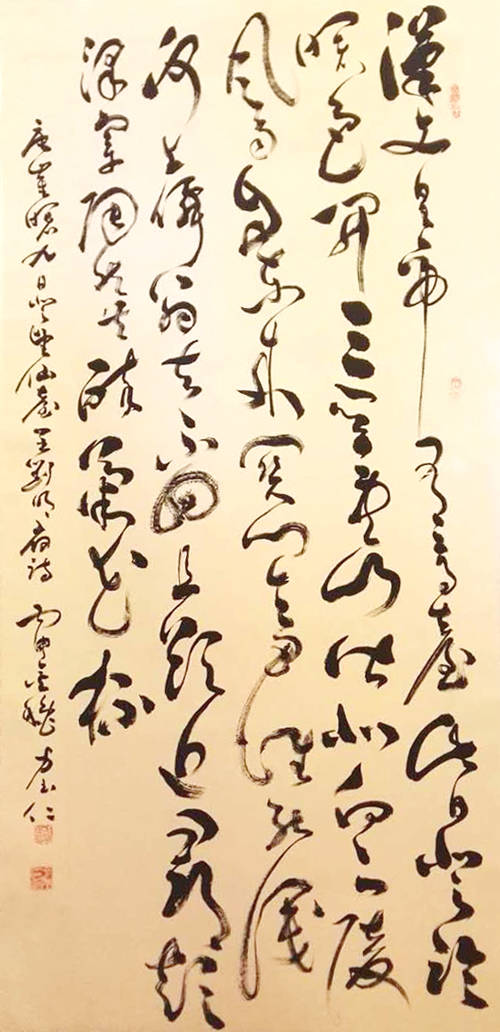 漢文皇帝有高臺此日登臨
曙色開三晉雲山皆北向二陵
風雨自東來關門令尹誰能識
河上僊翁去不回且欲近尋彭
澤宰陶然共醉菊花杯
唐崔曙九日登望仙臺呈劉明府詩 丙申 仁